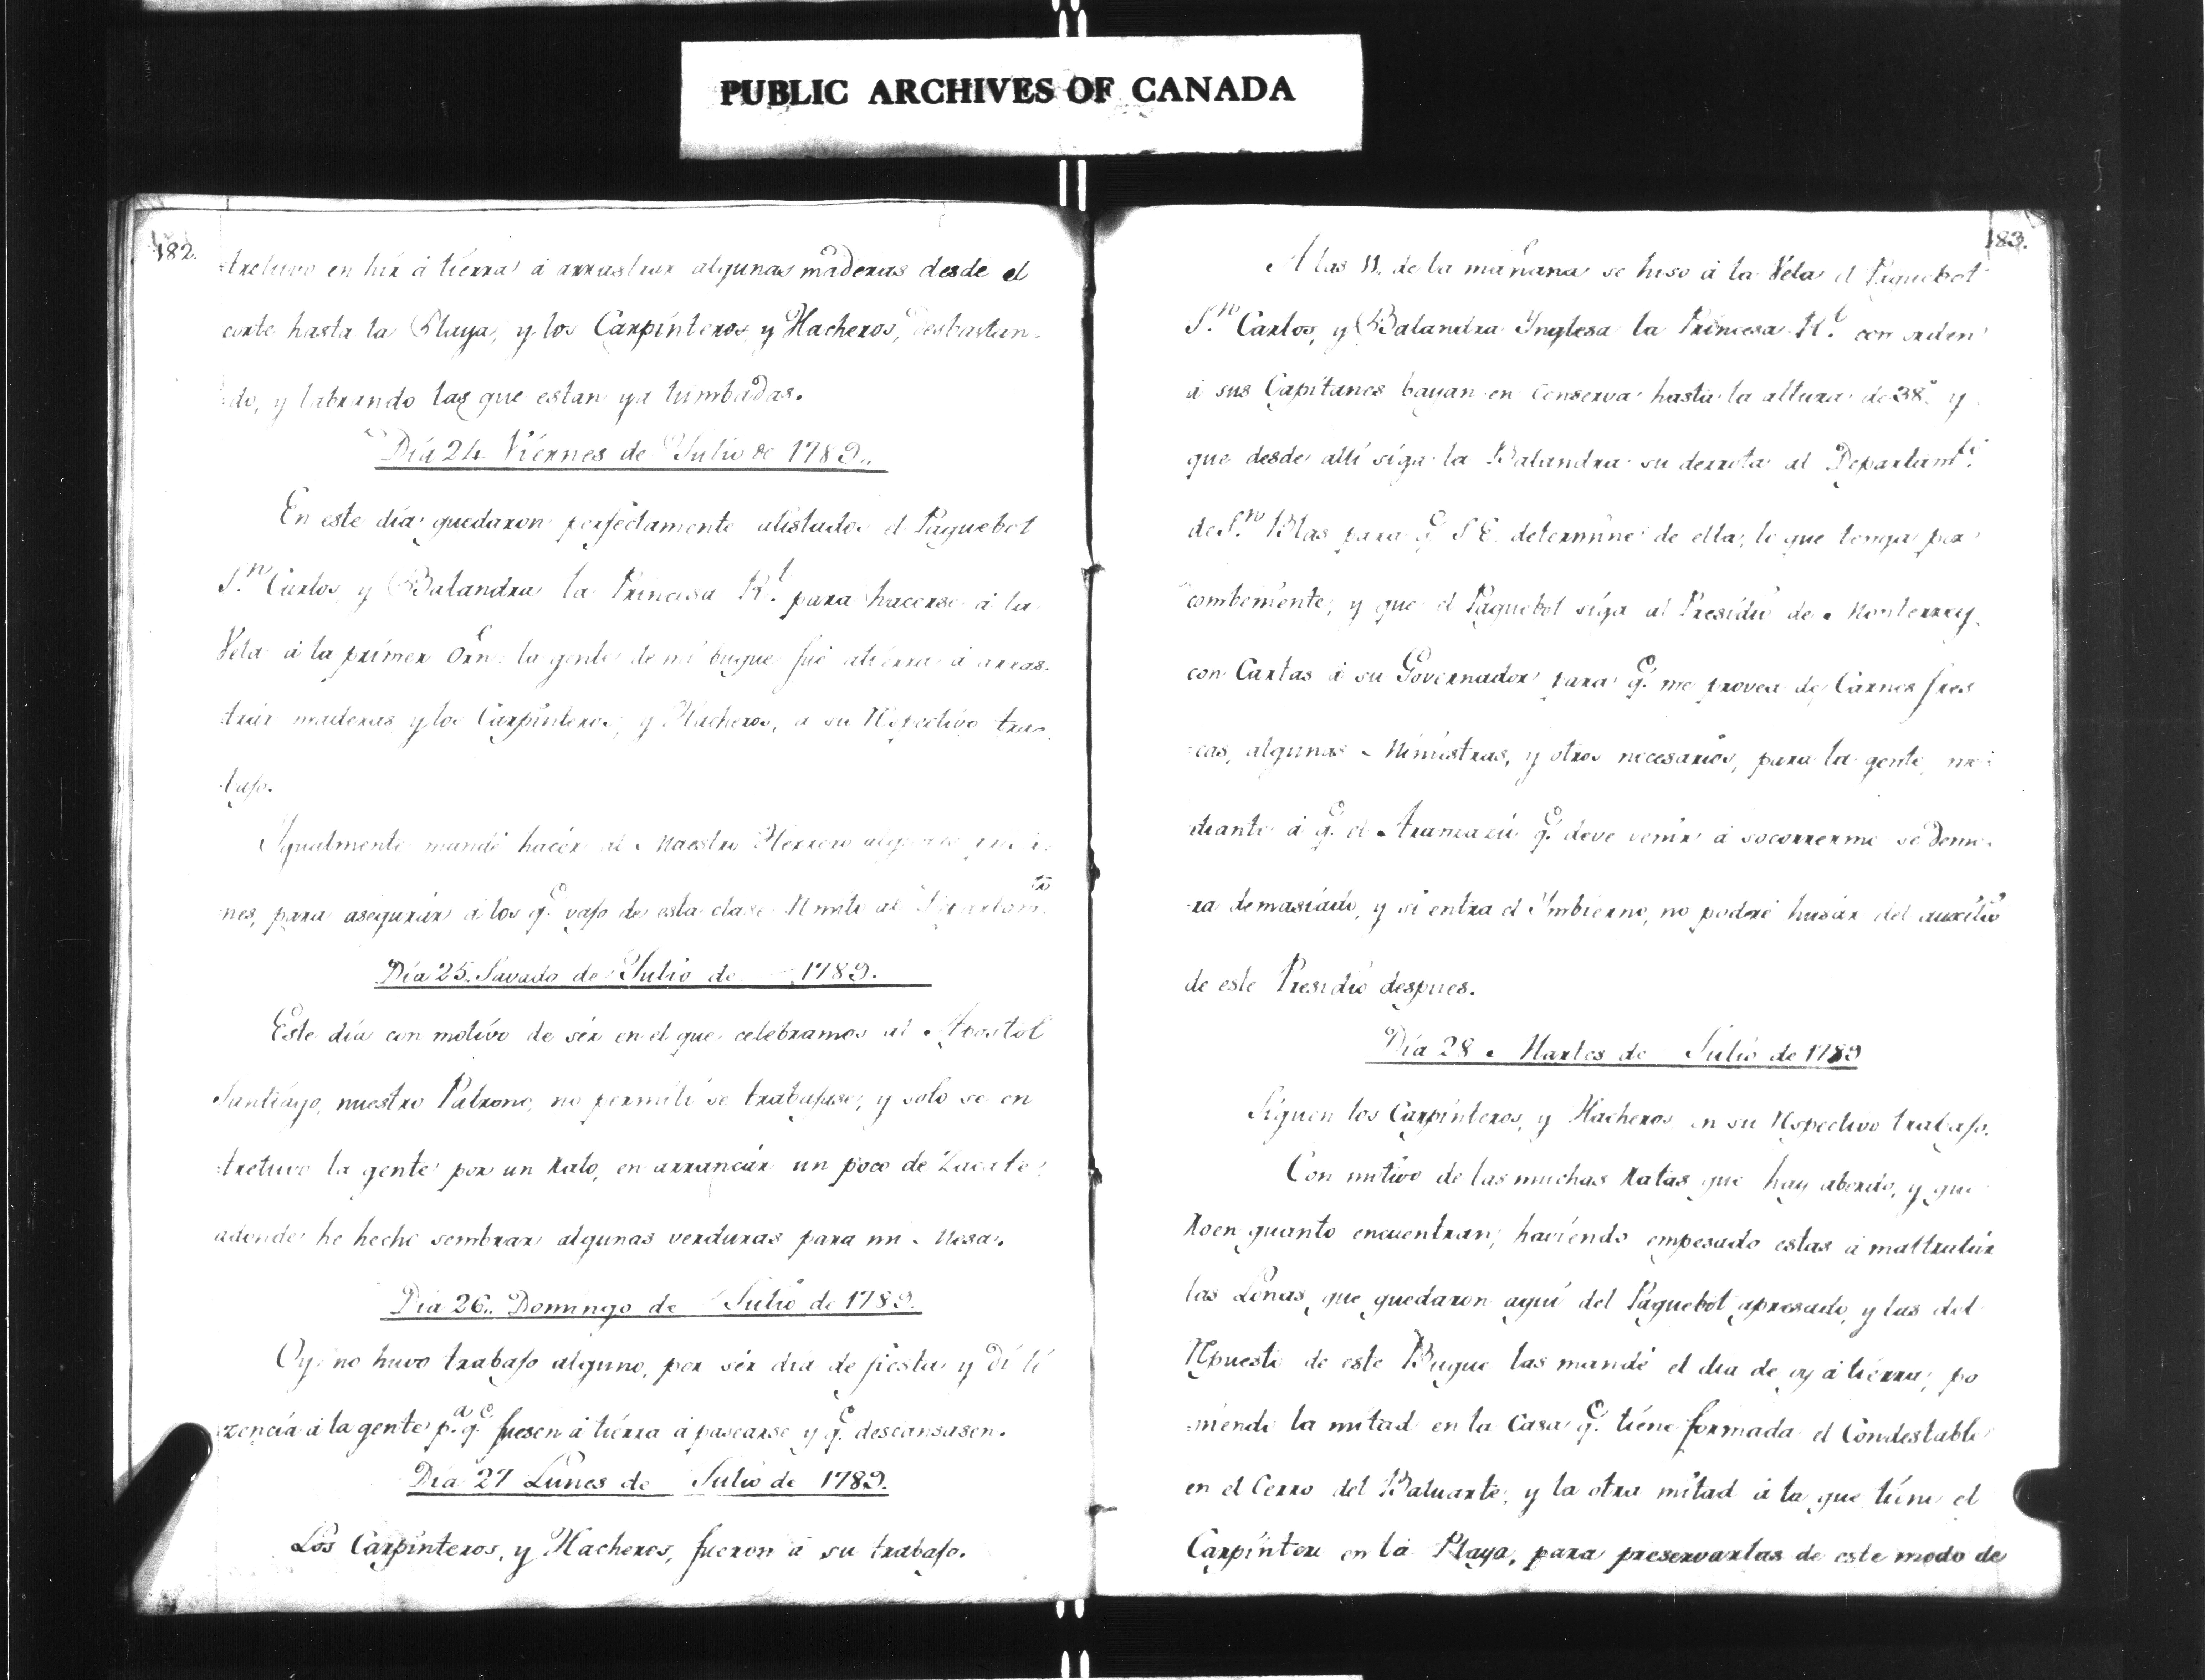 PUBLIC ARCHIVES OF CANADA
182.
tretuvo en hir á tierra á arrastrar algunas maderas desde el
corte hasta la Playa, y los Carpinteros, y Hacheros, desbastan-
do, y labrando las que estan ya tumbadas.
Dia 24. Viernes de Julio de 1789..
En este dia quedaron perfectamente alistados el Paquebot
S.n Carlos y Balandra la Princesa R.l para hacerse á la
Vela á la primer Orn. la gente de mi buque fué atierra á arras-
trár maderas y los Carpinteros, y Hacheros, á su Respectivo tra-
bajo.
Igualmente mandé hacér al Maestro Herrero algunos
nes, para asegurár á los q.e vajo de esta clase Rmito al Departam.to
Dia 25. Savado de Julio de 1789.
Este dia con motivo de sér en el que celebramos al Apostol
Santiago, nuestro Patrono, no permiti se trabajase, y solo se en
tretuvo la gente por un Rato, en arrancár un poco de Zacate,
adonde he hecho sembrar algunas verduras para mi Mesa.
Dia 26.. Domingo de Julio de 1789.
Oy no huvo trabajo alguno, por sér dia de fiesta y di li
zencia á la gente p.a q.e fuesen á tiérra á pasearse y q.e descansasen.
Dia 27 Lunes de Julio de 1789.
Los Carpinteros, y Hacheros, fueron á su trabajo.
183.
A las 11. de la mañana se hiso á la Vela el Paquebot
S.n Carlos, y Balandra Ynglesa la Princesa R.l con orden
á sus Capitanes bayan en Conserva hasta la altura de 38.° y
que desde alli siga la Balandra su derrota al Departam.to
de S.n Blas para q.e S E. determine de ella, lo que tenga por
combeniente, y que el Paquebot siga al Presidio de Monterrey
con Cartas á su Governador para q.e me provea de Carnes fres
cas, algunas Ministras, y otros necesarios, para la gente, me-
diante á q.e el Aramazú q.e deve venir á socorrerme se demo-
ra demasiado, y si entra el Imbierno, no podré husár del auxilio
de este Presidio despues.
Dia 28. Martes de Julio de 1789
Siguen los Carpinteros, y Hacheros en su Respectivo trabajo.
Con motivo de las muchas Ratas que hay abordo, y que
Roen quanto encuentran, haviendo empesado estas á maltratár
las Lonas que quedaron aqui del Paquebot apresado, y las del
Rpuesto de este Buque las mandé el dia de oy á tiérra, po
niendo la mitad en la Casa q.e tiene formada el Condestable
en el Cerro del Baluarte, y la otra mitad á la que tiene el
Carpintero en la Playa, para preservarlas de este modo de